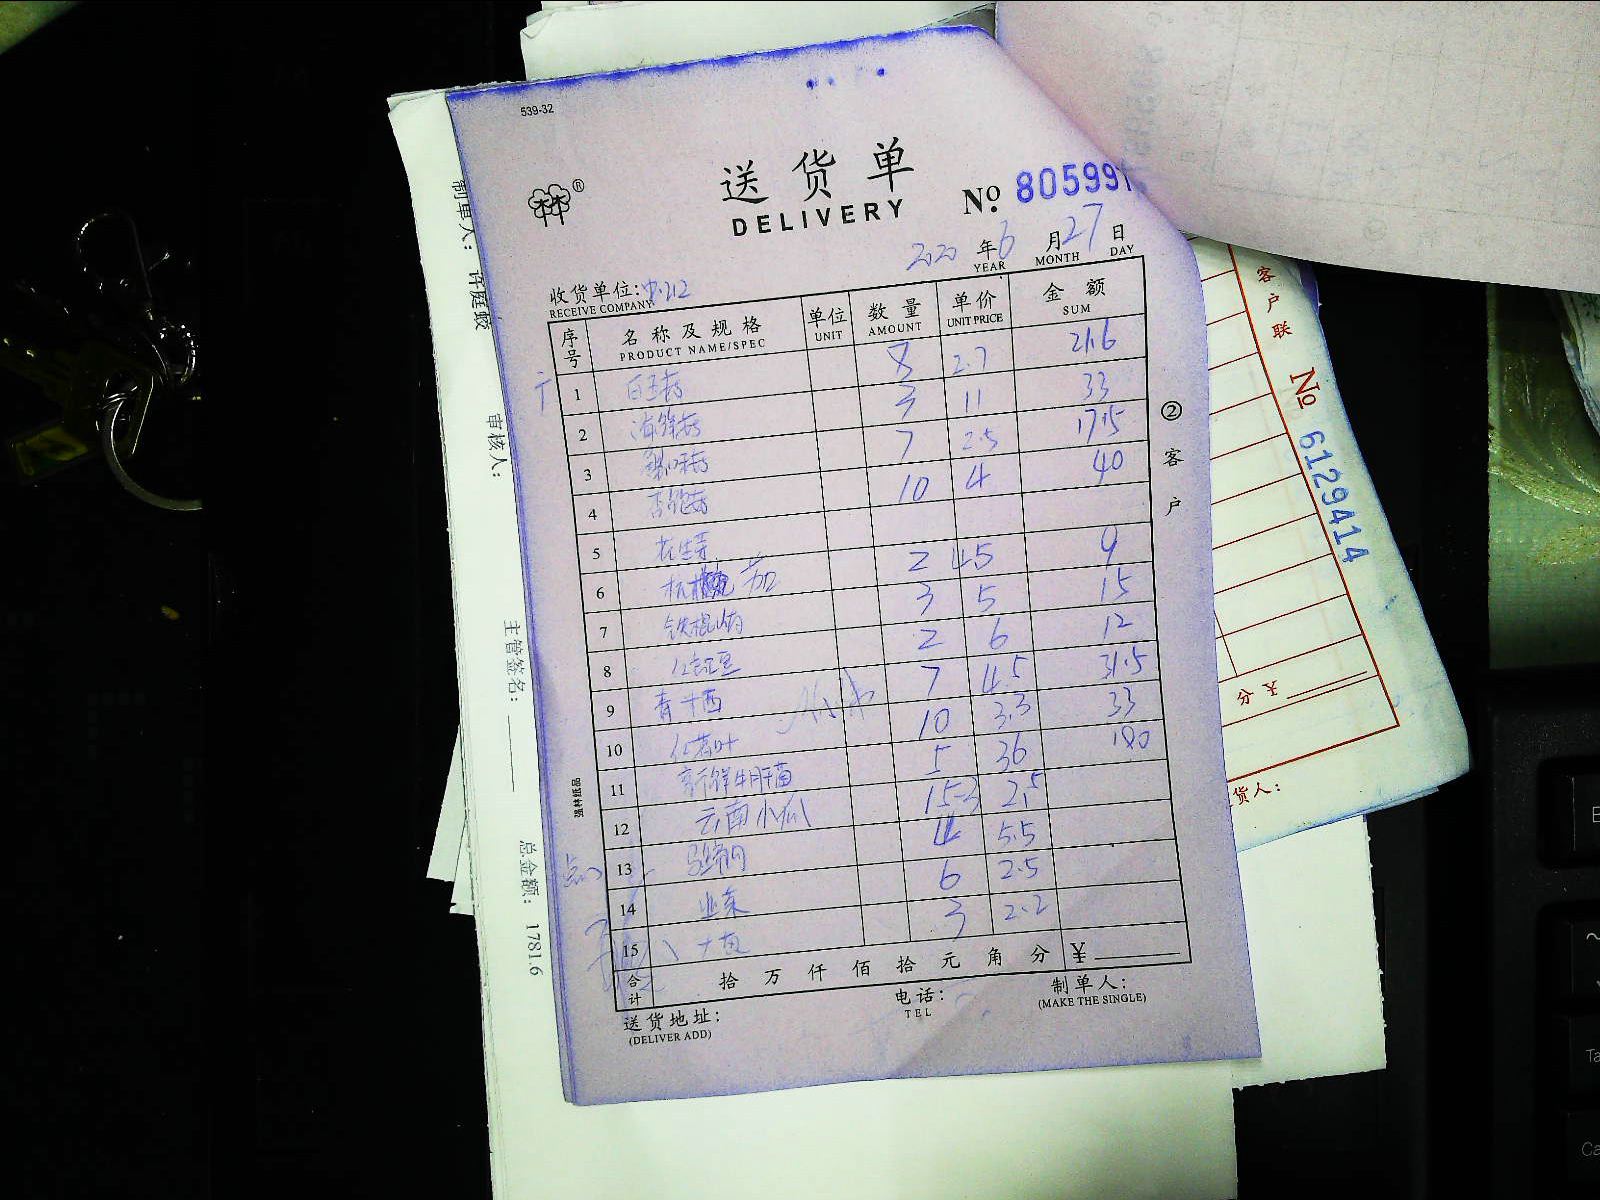 539-32
送货单
DELIVERY
№ 805997
2020 年 6 月 27 日
YEAR MONTH DAY
收货单位:
RECEIVE COMPANY
序号 名称及规格 单位 数量 单价 金额
PRODUCT NAME/SPEC UNIT AMOUNT UNIT PRICE SUM
1 白玉菇 8 2.7 21.6
2 海鲜菇 3 11 33
3 7 2.5 17.5
4 杏鲍菇 10 4 40
5 花生芽
6 杭 茄 2 4.5 9
7 铁棍山药 3 5 15
8 红豇豆 2 6 12
9 青 西 7 4.5 31.5
10 红苕叶 10 3.3 33
11 新鲜牛肝菌 5 36 180
12 云南小瓜 15-3 2.5
13 4 5.5
14 韭菜 6 2.5
15 3 2.2
合计 拾万仟佰拾元角分 ¥
送货地址:
(DELIVER ADD)
电话:
TEL
制单人:
(MAKE THE SINGLE)
②客户
强林纸品
制单人: 许庭蛟
审核人:
主管签名:
总金额: 1781.6
客户联
№ 6129414
分 ¥
货人: